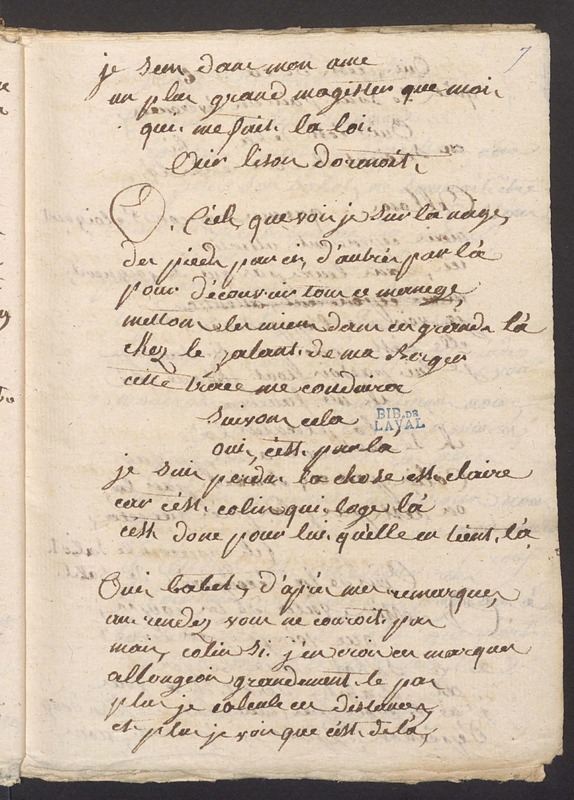 7
je sens dans mon ame
un plus grand magister que moi
qui me fait la loi
Air lison dormoit
Ciel que voi je sur la nege
des pieds par ci, d'autres par là
pour découvrir tout ce manege
mettons les miens dans ces grands là
chez le galant de ma Berger
cette trace me conduira
suivons cela
BIB. DE
LAVAL
oui, c'est par la
je suis perdu la chose est claire
car c'est colin qui loge là
c'est donc pour lui qu'elle en tient là
Oui babet, d'après mes remarques
au rendez vous ne couroit pas
mais, colin si j'en croi ces marques
allongeoit grandement le pas
plus je calcule ces distances
et plus je voi que c'est delà